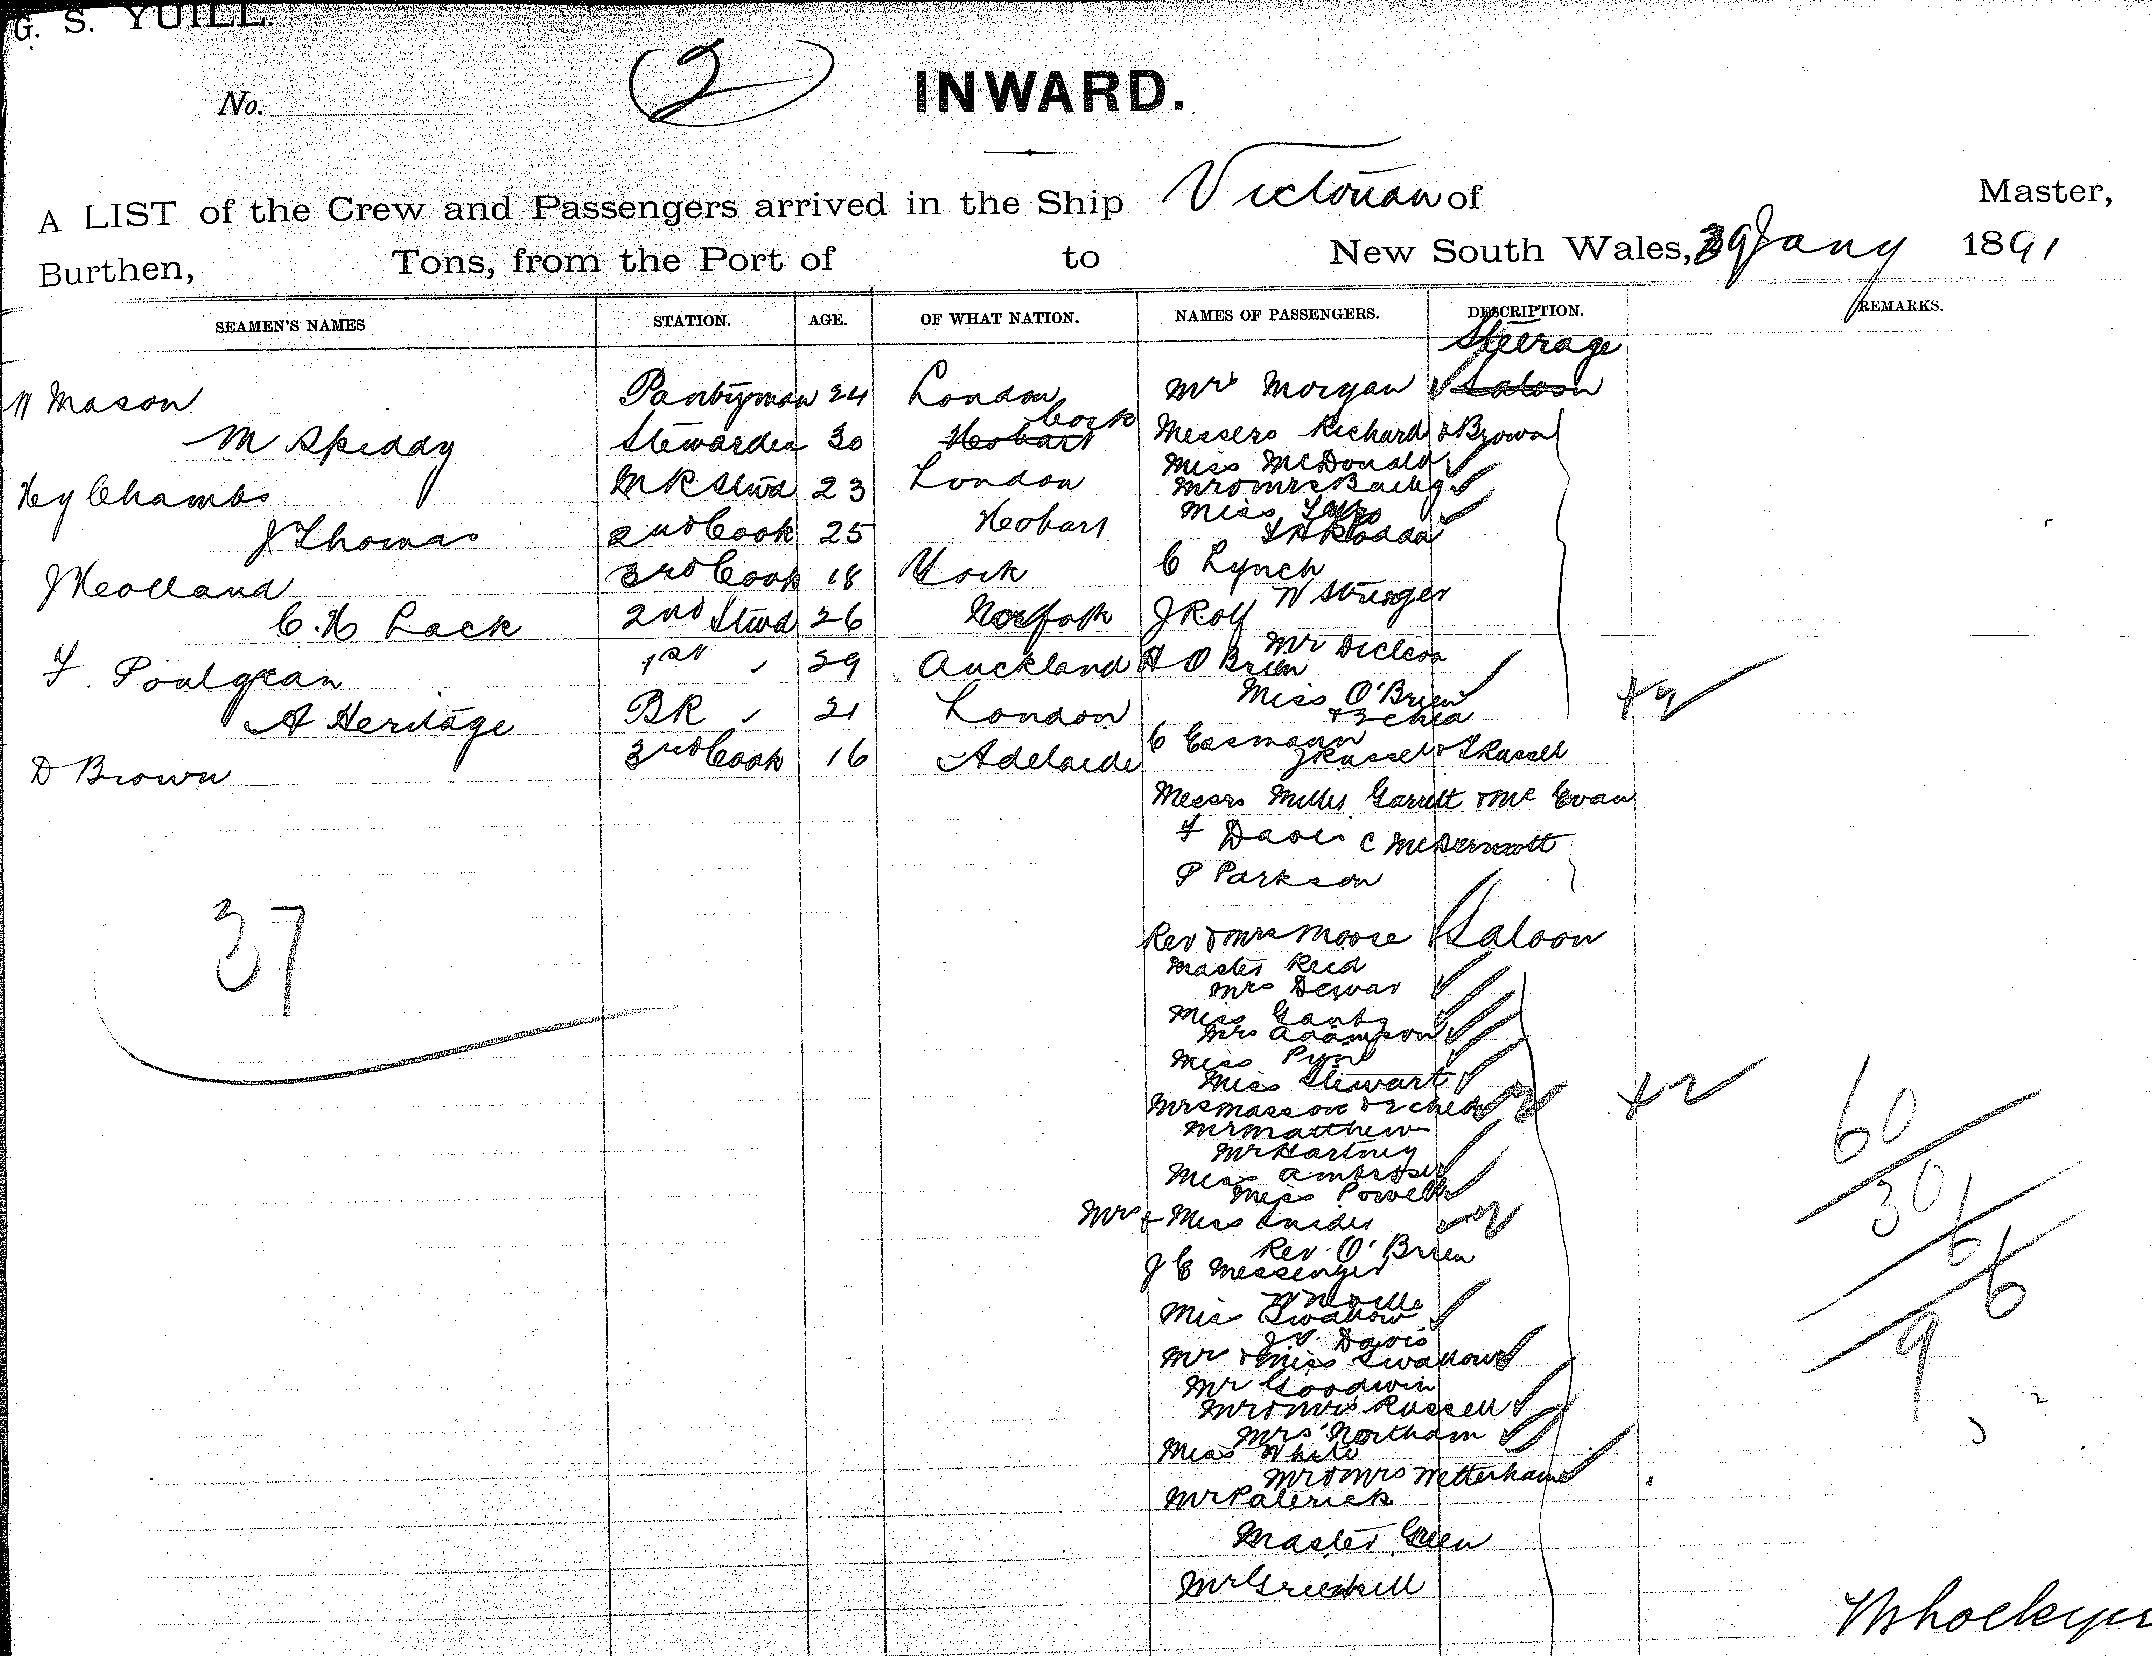 G. S. YUILL.
No.
2
INWARD.
A LIST of the Crew and Passengers arrived in the Ship Victorian of Master,
Burthen, Tons, from the Port of to New South Wales, 29 Jany 1891
SEAMEN'S NAMES STATION. AGE. OF WHAT NATION. NAMES OF PASSENGERS. DESCRIPTION. REMARKS.
Steerage
W Mason Pantryman 24 London Mrs Morgan Saloon
M Speddy Stewardess 30 Hobart Cork Messers Richard & Brown
Miss McDonald
Hy Chambs MR Stwd 23 London Mr & Mrs
Miss
J Thomas 2nd Cook 25 Hobart
J Holland 3rd Cook 18 York C Lynch
W Stringer
C. H Lack 2nd Stwd 26 Norfolk J Rolf
Mr
F. Poulgrean 1st " 29 Auckland H O'Brien
Miss O'Brien
& 2 chia
A Heritage BR " 21 London
C
D Brown 3rd Cook 16 Adelaide J Russell & Russell
Messrs Miller Garrett & Mc Evan
F Davis C McDermott
P Parkson
37
Rev & Mrs Moore Saloon
Master Reid
Mrs Dewar
Miss
Mrs Adampson
Miss Pyne
Miss Stewart
Mrs Masson & 2 child
Mr Matthew
Mr Hartney
Miss Ambrose
Miss Powell
Mr & Miss
Rev. O'Brien
J C Messenger
W
Miss Swallow
J. Davis
Mr & Miss Swallow
Mr Goodwin
Mr & Mrs Russell
Mrs Northam
Miss White
Mr & Mrs Wetterham
Mr
Master Green
Mr Greenhill
+ 2
+ 2
60
30
6
6
9